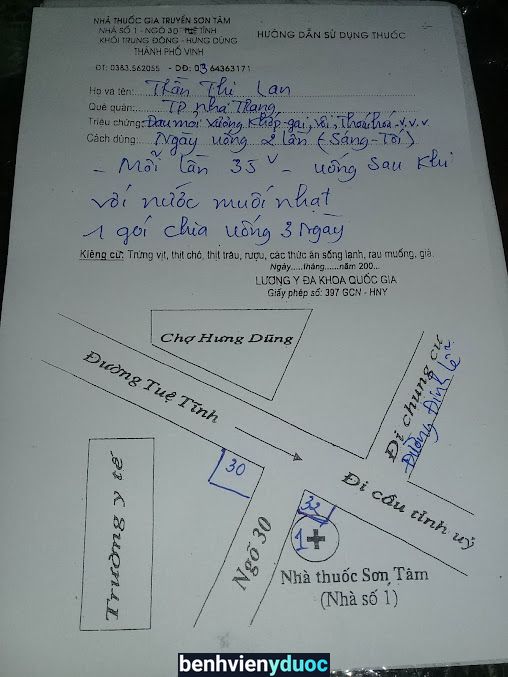 NHÀ THUỐC GIA TRUYỀN SƠN TÂM
NHÀ SỐ 1 - NGÕ 30 TUỆ TĨNH
KHỐI TRUNG ĐÔNG - HƯNG DŨNG
THÀNH PHỐ VINH
HƯỚNG DẪN SỬ DỤNG THUỐC
ĐT: 0383.562055 - DĐ: 0364363171
Họ và tên: Trần Thị Lan
Quê quán: TP nha Trang
Triệu chứng: Đau mỏi xương khớp-gai, vôi, Thoái hoá v.v.v
Cách dùng: Ngày uống 2 lần (Sáng-Tối)
- Mỗi lần 35 v - uống sau khi
với nước muối nhạt
1 gói chia uống 3 Ngày
Kiêng cữ: Trứng vịt, thịt chó, thịt trâu, rượu, các thức ăn sống lạnh, rau muống, giá.
Ngày.....tháng......năm 200...
LƯƠNG Y ĐA KHOA QUỐC GIA
Giấy phép số: 397 GCN - HNY
Chợ Hưng Dũng
Đường Tuệ Tĩnh
Đi chung cư
Đường Đinh Lễ
30
Đi cầu tỉnh uỷ
Trường y tế
Ngõ 30
32
1
Nhà thuốc Sơn Tâm
(Nhà số 1)
benhvienyduoc.com